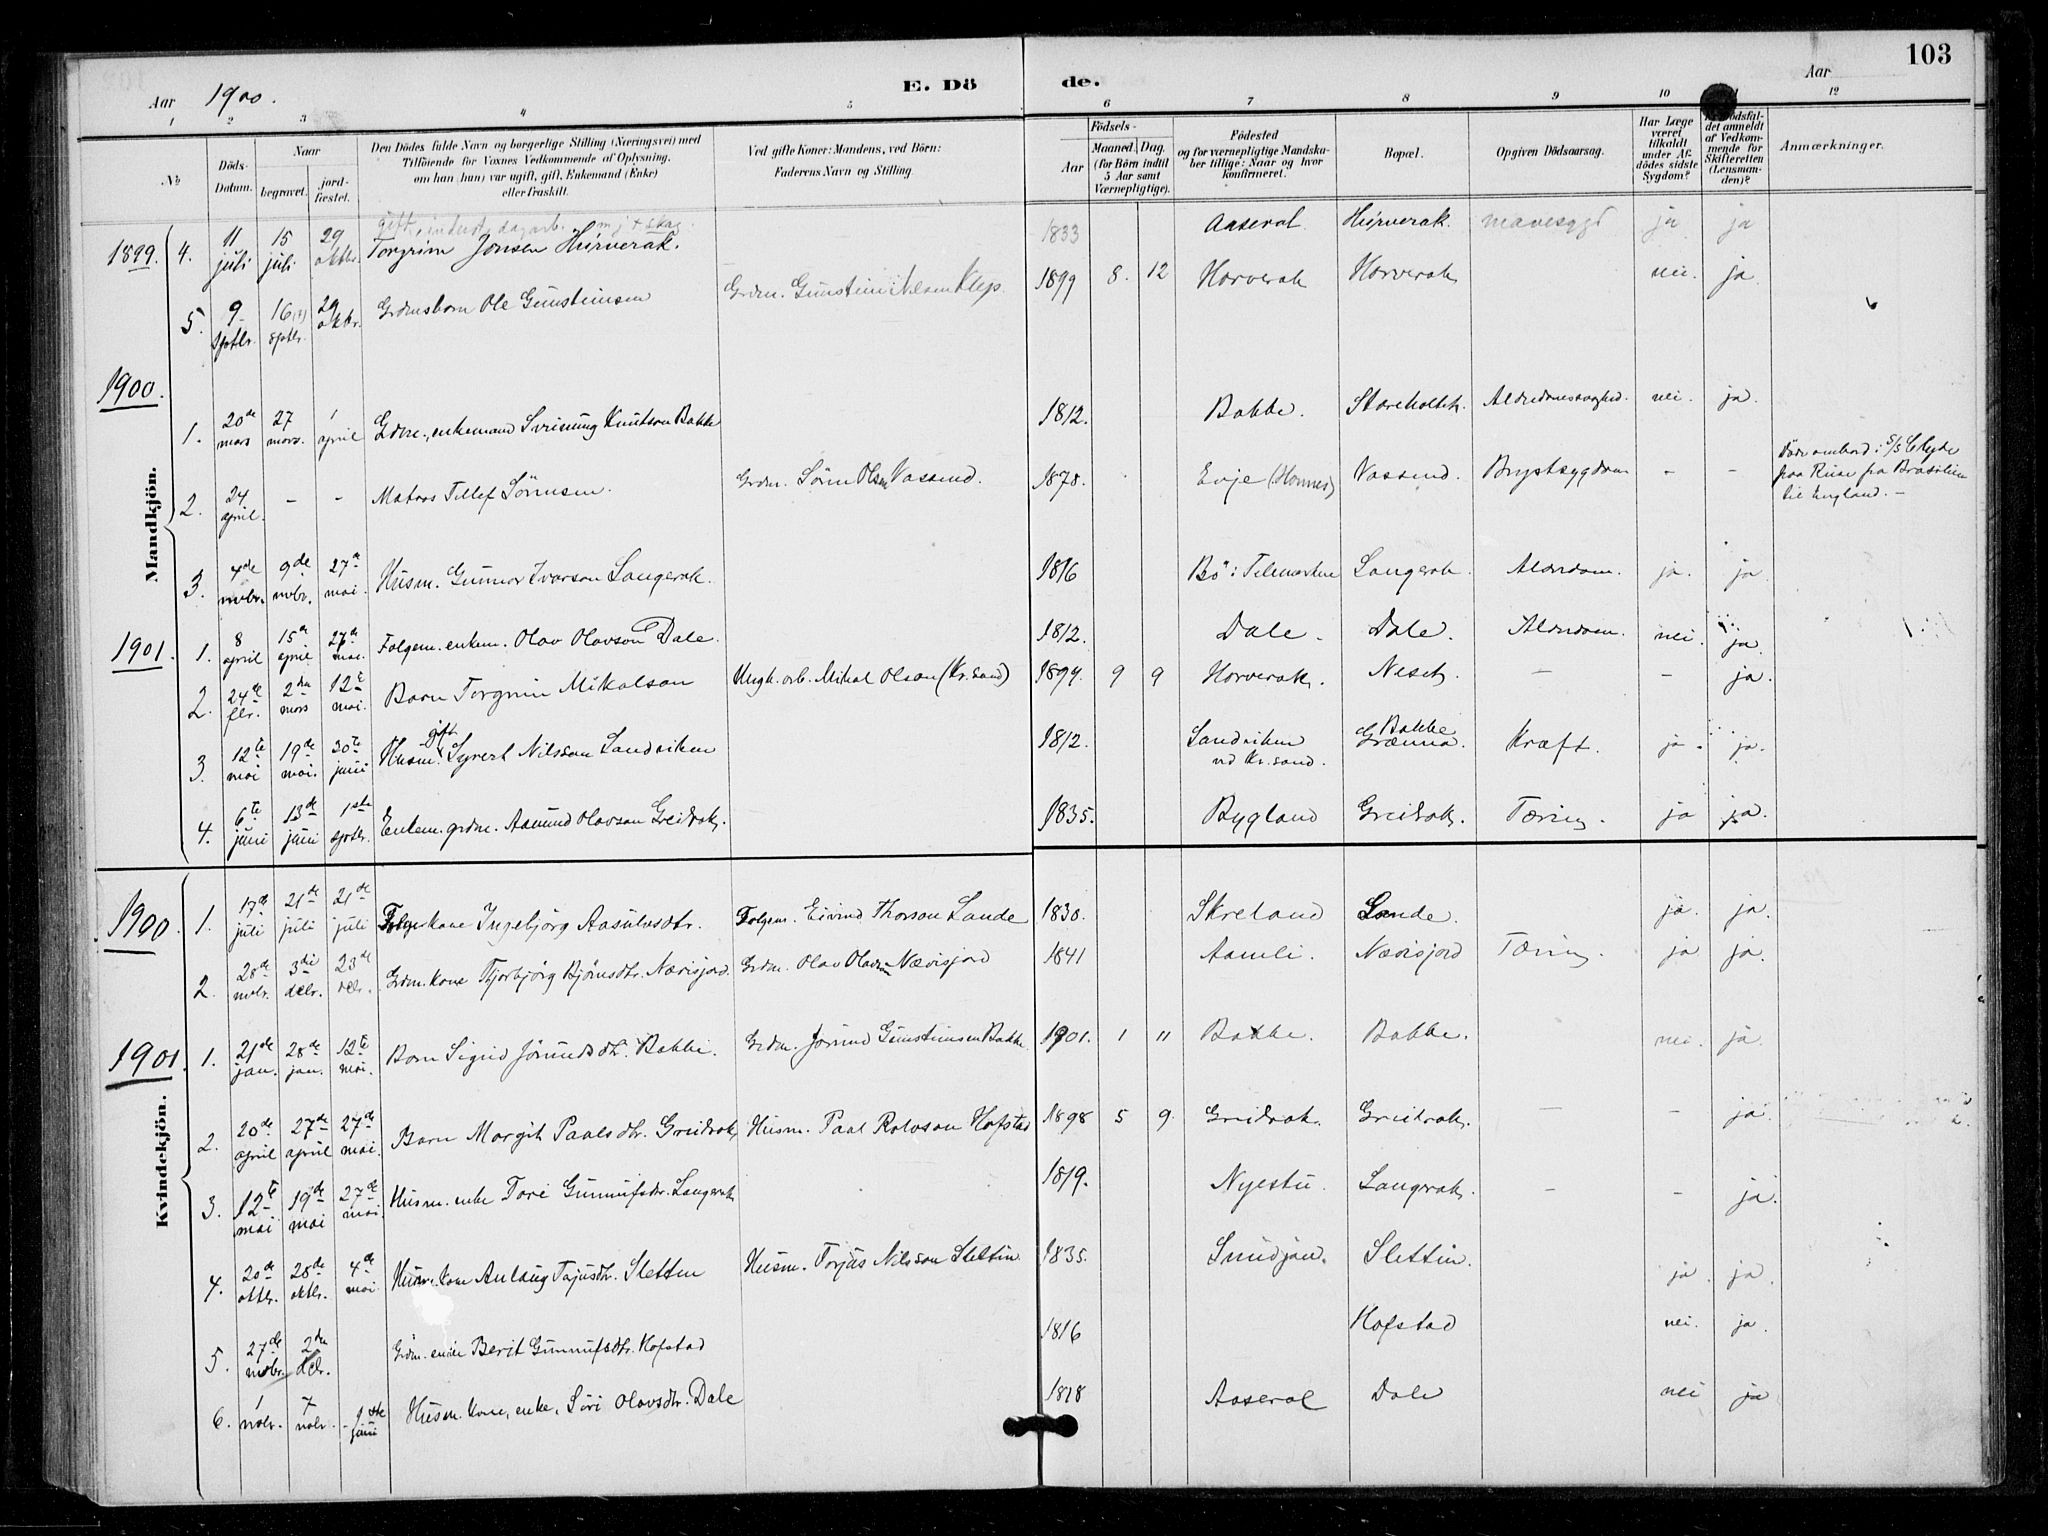 103
Aar 1900.
E. Dö de.
Aar
1 2 3 4 5 6 7 8 9 10 12
No
Döds-Datum.
Naar begravet.
jordfæstet.
Den Dödes fulde Navn og borgerlige Stilling (Næringsvei) med Tilföiende for Voxnes Vedkommende af Oplysning, om han (hun) var ugift, gift, Enkemand (Enke) eller fraskilt.
Ved gifte Koner: Mandens, ved Börn: Faderens Navn og Stilling.
Aar
Födsels- Maaned. Dag. (for Börn indtil 5 Aar samt Værnepligtige).
Födested og for værnepligtige Mandskaber tillige: Naar og hvor konfirmeret.
Bopæl.
Opgiven Dödsaarsag.
Har Læge været tilkaldt under Afdödes sidste Sygdom?
Dödsfaldet anmeldt af Vedkommende for Skifteretten (Lensmanden)?
Anmærkninger.
Mandkjön.
1899. 4. 11 juli 15 juli 29 oktbr. gift, inderst, dagarb. Torgrim Jonsen Hørverak. 1833 Aaseral Hørverak mavesygd ja ja
5. 9 septbr. 16 (?) septbr. 29 oktbr. Grdmsbarn Ole Gunsteinsen Grdm. Gunstein Nilsen Klep. 1899 8. 12 Horverak Horverak nei. ja.
1900.
1. 20de mars 27 mars. 1 april Grdm., enkemand Sveinung Knutson Bakke 1812. Bakke. Storeholtet. Alderdomssvaghed. nei. ja.
2. 24 april. - - Matros Tellef Sörensen. Grdm. Sören Olsen Vassend. 1878. Evje (Hornnes) Vassend. Brystsygdom - - Döde ombord i S/S Clyde paa Reise fra Brasilien til England. -
3. 4de novbr. 9de novbr. 27de mai. Husm. Gunnar Ivarson Langerak. 1816 Bö i Telemarken Langerak. Alderdom. ja. ja.
1901. 1. 8 april 15de april 27de mai. Folgem. enkem. Olav Olavson Dale. 1812. Dale. Dale. Alderdom. nei. ja.
2. 24de febr. 2den mars 12te mai. Barn Torgrim Mikalson Ungk. arb. Mikal Olson (Kr.sand) 1894. 9 9 Horverak. Neset. - - ja.
3. 12te mai 19de mai. 30te juni Husm. gift Syvert Nilsson Sandviken 1812. Sandviken ved Kr.sand. Bakke Grænna. Kræft. ja. ja.
4. 6te juni 13de juni 1ste septbr. Enkem. grdm. Aamund Olavson Greidvak. 1835. Bygland Greidvak. Tæring. ja ja.
Kvindekjön.
1900 1. 17de juli 21de juli 21de juli Folgekone Ingebjörg Aasulvsdtr. Folgem. Eivind Thorson Lande 1830. Skreland Lande. ja. ja.
2. 28de novbr. 3die decbr. 23de decbr. Grdm.kone Thorbjörg Björnsdtr. Nævisjord. Grdm. Olav Olavson Nævisjord 1841 Aamli. Nævisjord Tæring. ja ja.
1901. 1. 21de jan. 28de jan. 12te mai. Barn Sigrid Jörundsdtr. Bakke. Grdm. Jörund Gunsteinsen Bakke. 1901. 1 11 Bakke. Bakke. nei. ja.
2. 20de april 27de april 27de mai. Barn Margit Paalsdtr. Greidvak Husm. Paal Rolvson Hofstad 1898 5 9. Greidvak. Greidvak. - - ja.
3. 12te mai 19de mai 27de mai. Husm. enke Tore Gunnulfsdtr. Langerak 1819. Nyestu. Langerak. - - ja.
4. 20de oktbr. 28de oktbr. 4de mai Husm. kone Anlaug Tarjusdtr. Sletten Husm. Torjus Nilsson Slettin 1835. Smidjan. Slettin. ja. ja.
5. 27de novbr. 2den decbr. Grdm. enke Berit Gunnufsdtr. Hofstad 1816 Hofstad nei. ja.
6. 1 novbr. 7 novbr. 1ste juni Husm. kone, enke, Siri Olavsdtr. Dale 1818 Aaseral Dale nei ja